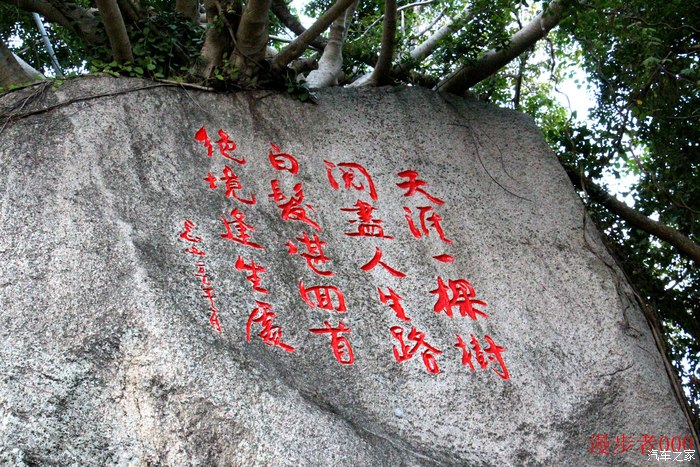 天涯一棵樹
閱盡人生路
白髮堪回首
絕境逢生處
漫步者000
汽车之家